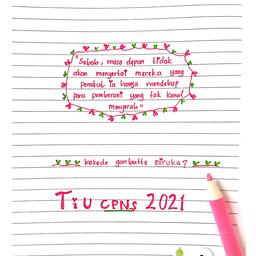 "Sebab, masa depan tidak
akan menyertai mereka yang
penakut, ia hanya mendekap
para pemberani yang tak kenal
menyerah"
kokode ganbatte miruka?
TiU CPNS 2021